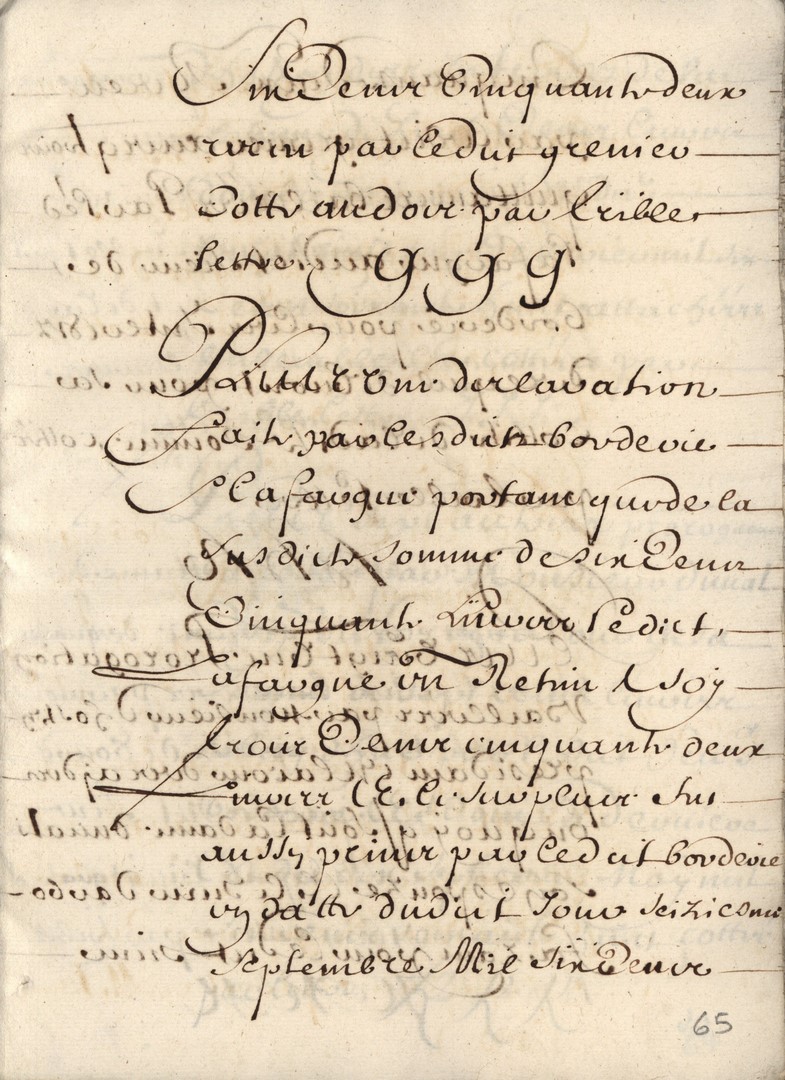 Six Cens Cinquante deux
receu par ledict grenier
Cotté au dos par trible
lettre g g g
Plus une declaration
faite par lesdicts borderie
& lafargue portant que de la
susdicte somme de six Cens
Cinquante livres ledict
lafargue en Retint A soy
trois Cens cinquante deux
livres & le surplus fut
aussy prins par ledict borderie
en datte dudict jour seiziesme
septembre Mil six Cens
65